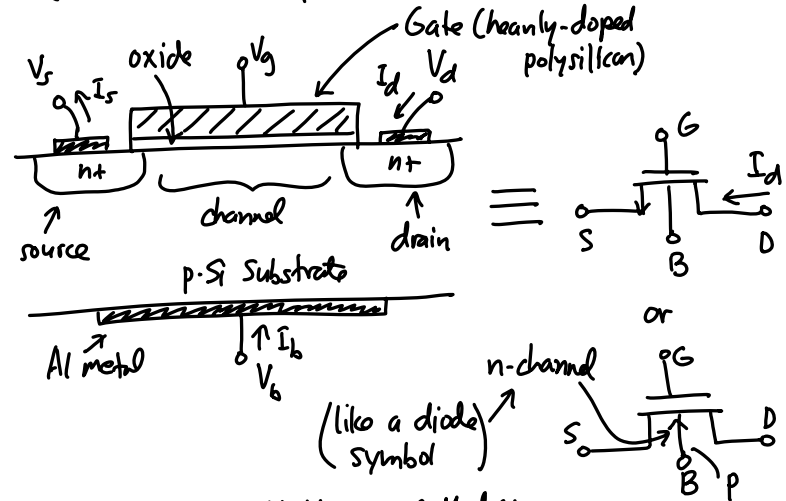 Gate (heavily-doped
polysilicon)
oxide
Vg
Vs
Is
Id
Vd
n+
n+
channel
source
drain
p-Si Substrate
Al metal
Ib
Vb
G
Id
S
B
D
or
n-channel
G
(like a diode
symbol)
S
D
B
P